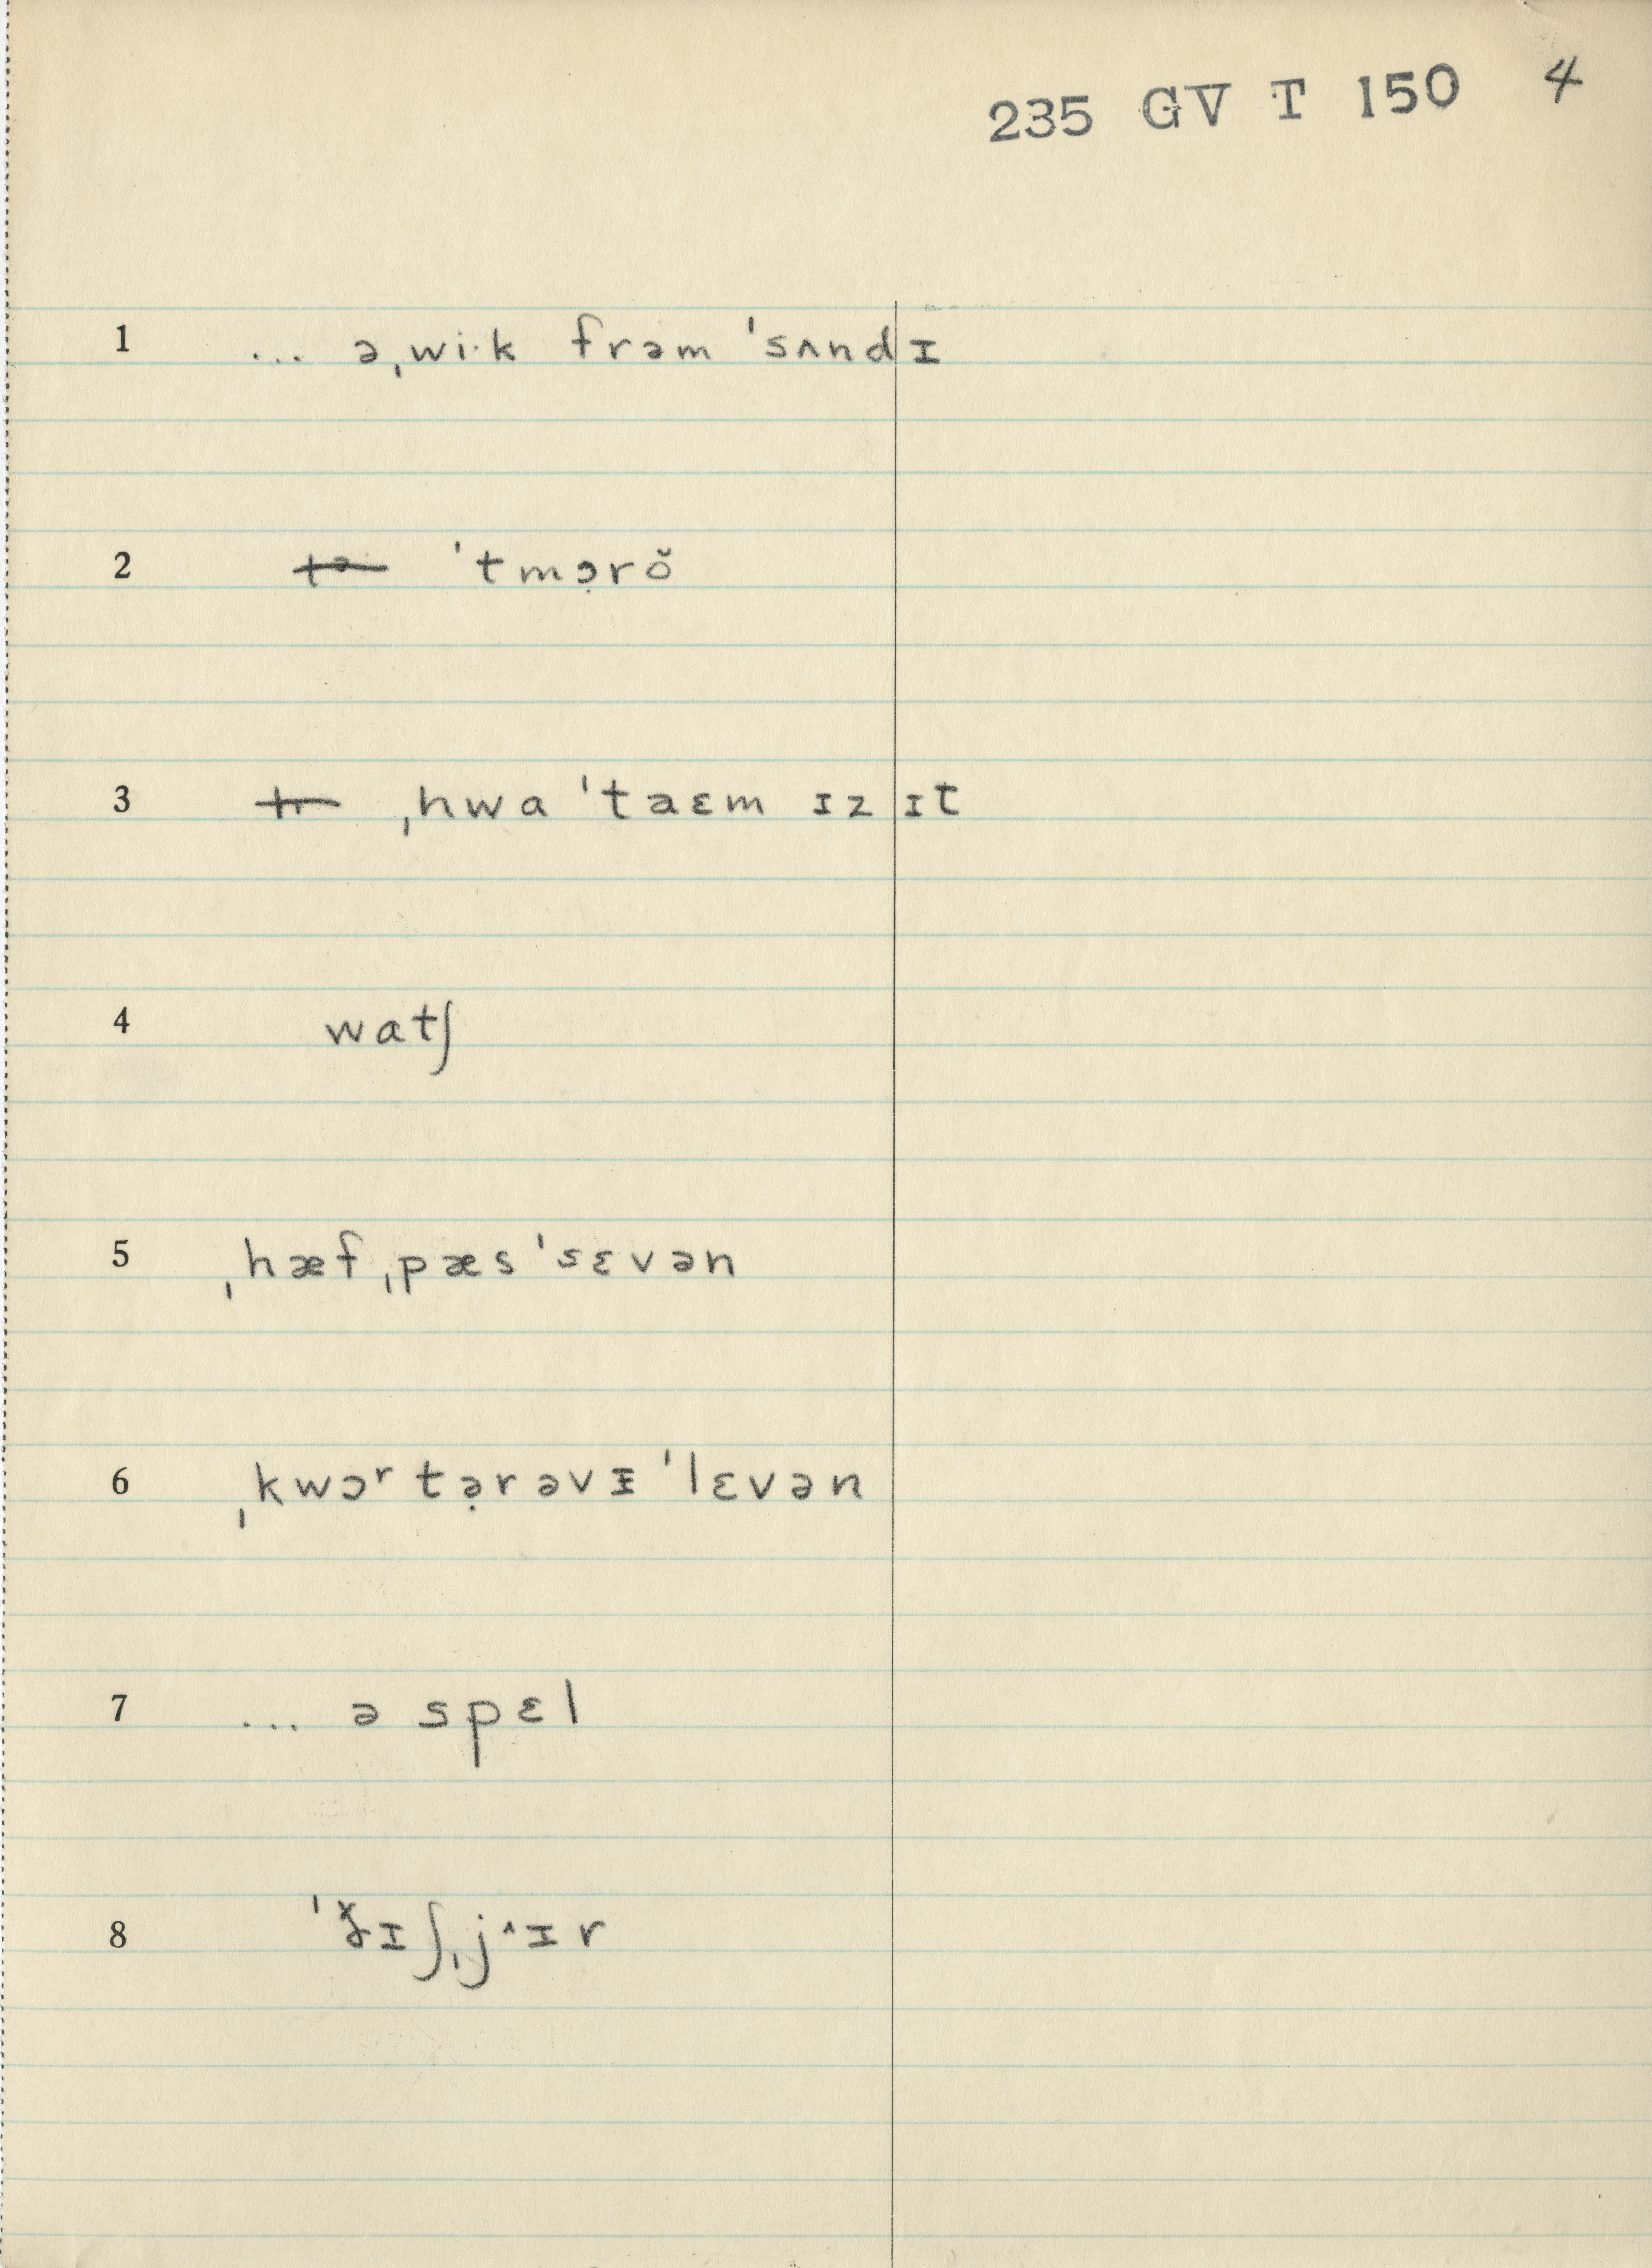 235 GV T 150 4
1 ... əˌwi·k frəm ˈsʌndɪ
2 ˈtmɔ̣rŏ
3 ˌhwa ˈtaɛm ɪz ɪt
4 watʃ
5 ˌhæf ˌpæs ˈsɛvən
6 ˌkwɔʳtə̣rəvɪ̵ ˈlɛvən
7 ... ə spɛl